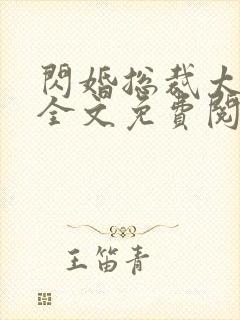 閃婚總裁大
全文免費閱
王笛青